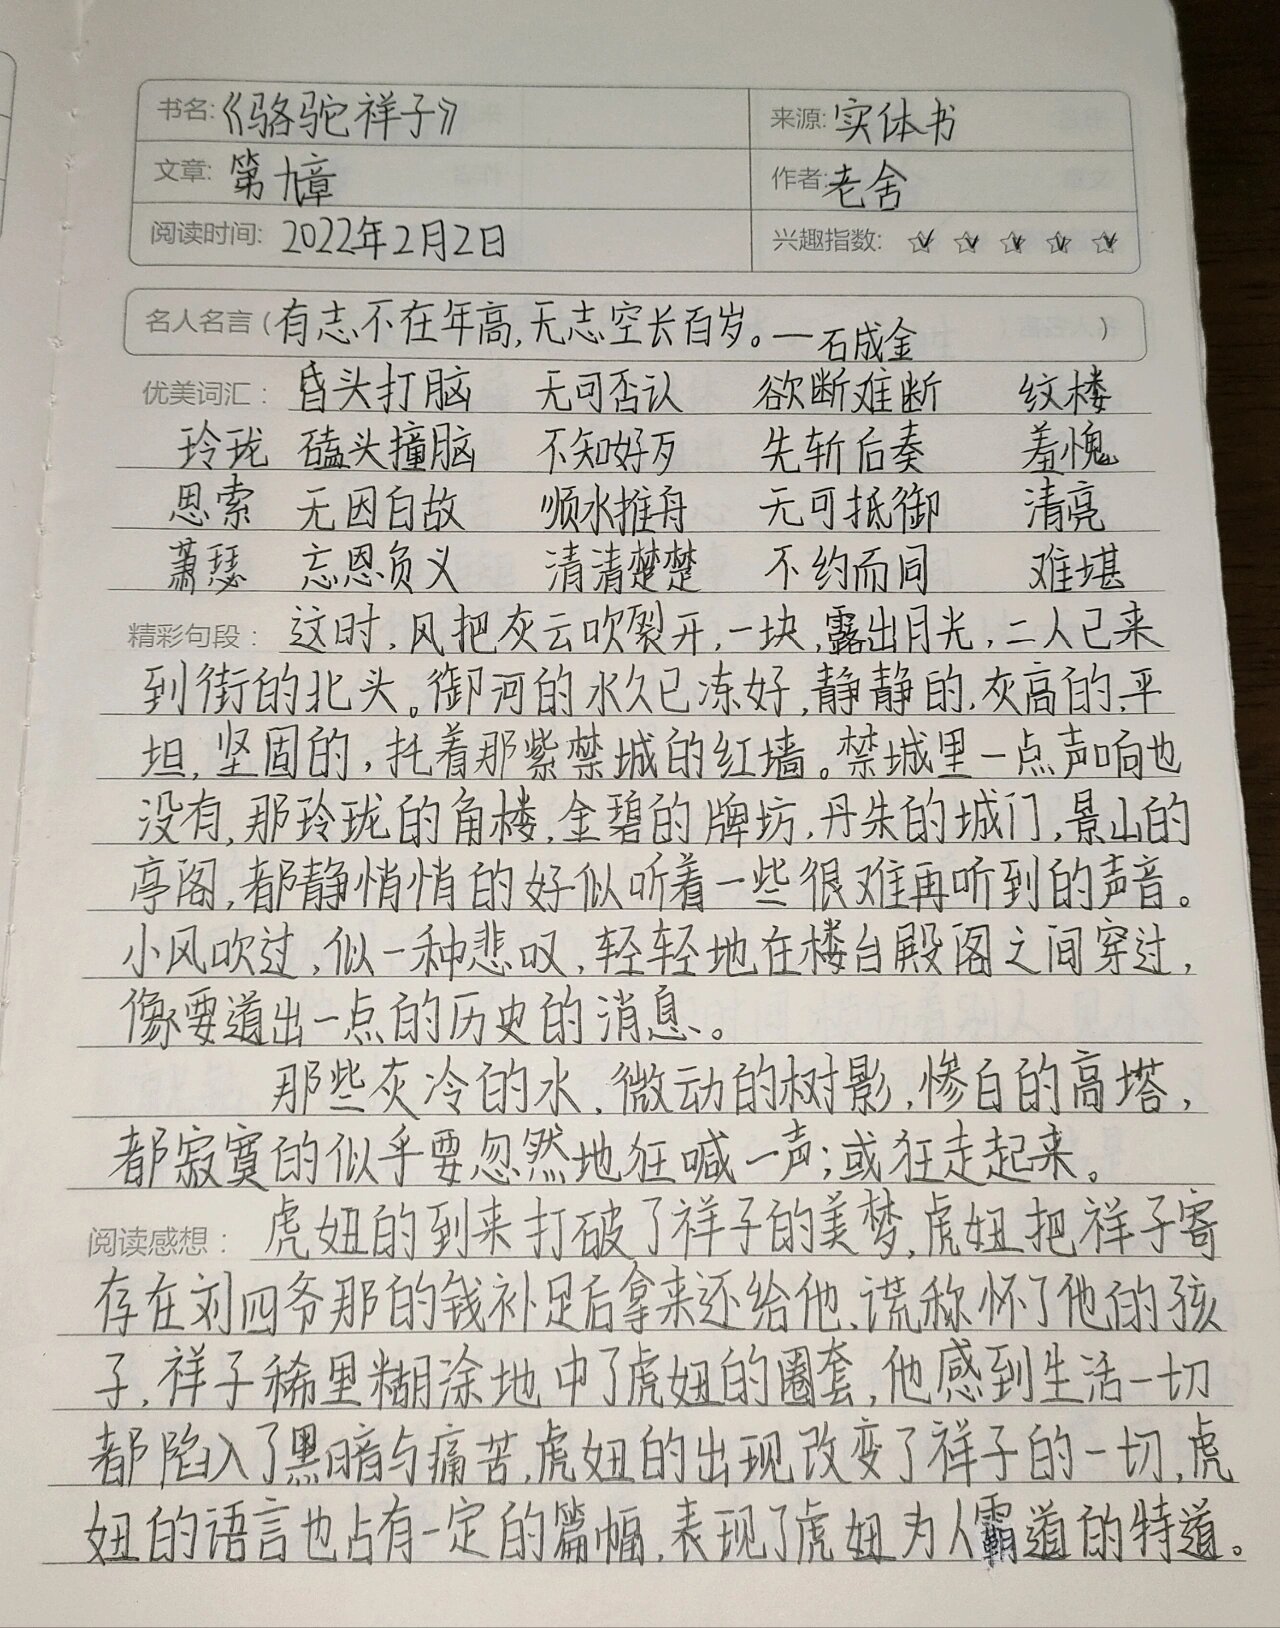 书名:《骆驼祥子》 来源:实体书
文章:第九章 作者:老舍
阅读时间:2022年2月2日 兴趣指数:
名人名言(有志不在年高,无志空长百岁。—石成金)
优美词汇: 昏头打脑 无可否认 欲断难断 纹楼
玲珑 磕头撞脑 不知好歹 先斩后奏 羞愧
思索 无因白故 顺水推舟 无可抵御 清亮
萧瑟 忘恩负义 清清楚楚 不约而同 难堪
精彩句段: 这时,风把灰云吹裂开,一块,露出月光,二人已来
到街的北头。御河的水久已冻好,静静的,灰高的,平
坦,坚固的,托着那紫禁城的红墙。禁城里一点声响也
没有,那玲珑的角楼,金碧的牌坊,丹朱的城门,景山的
亭阁,都静悄悄的好似听着一些很难再听到的声音。
小风吹过,似一种悲叹,轻轻地在楼台殿阁之间穿过,
像要道出一点的历史的消息。
那些灰冷的水,微动的树影,惨白的高塔,
都寂寞的似乎要忽然地狂喊一声;或狂走起来。
阅读感想: 虎妞的到来打破了祥子的美梦,虎妞把祥子寄
存在刘四爷那的钱补足后拿来还给他,谎称怀了他的孩
子,祥子稀里糊涂地中了虎妞的圈套,他感到生活一切
都陷入了黑暗与痛苦,虎妞的出现改变了祥子的一切,虎
妞的语言也占有一定的篇幅,表现了虎妞为人霸道的特道。